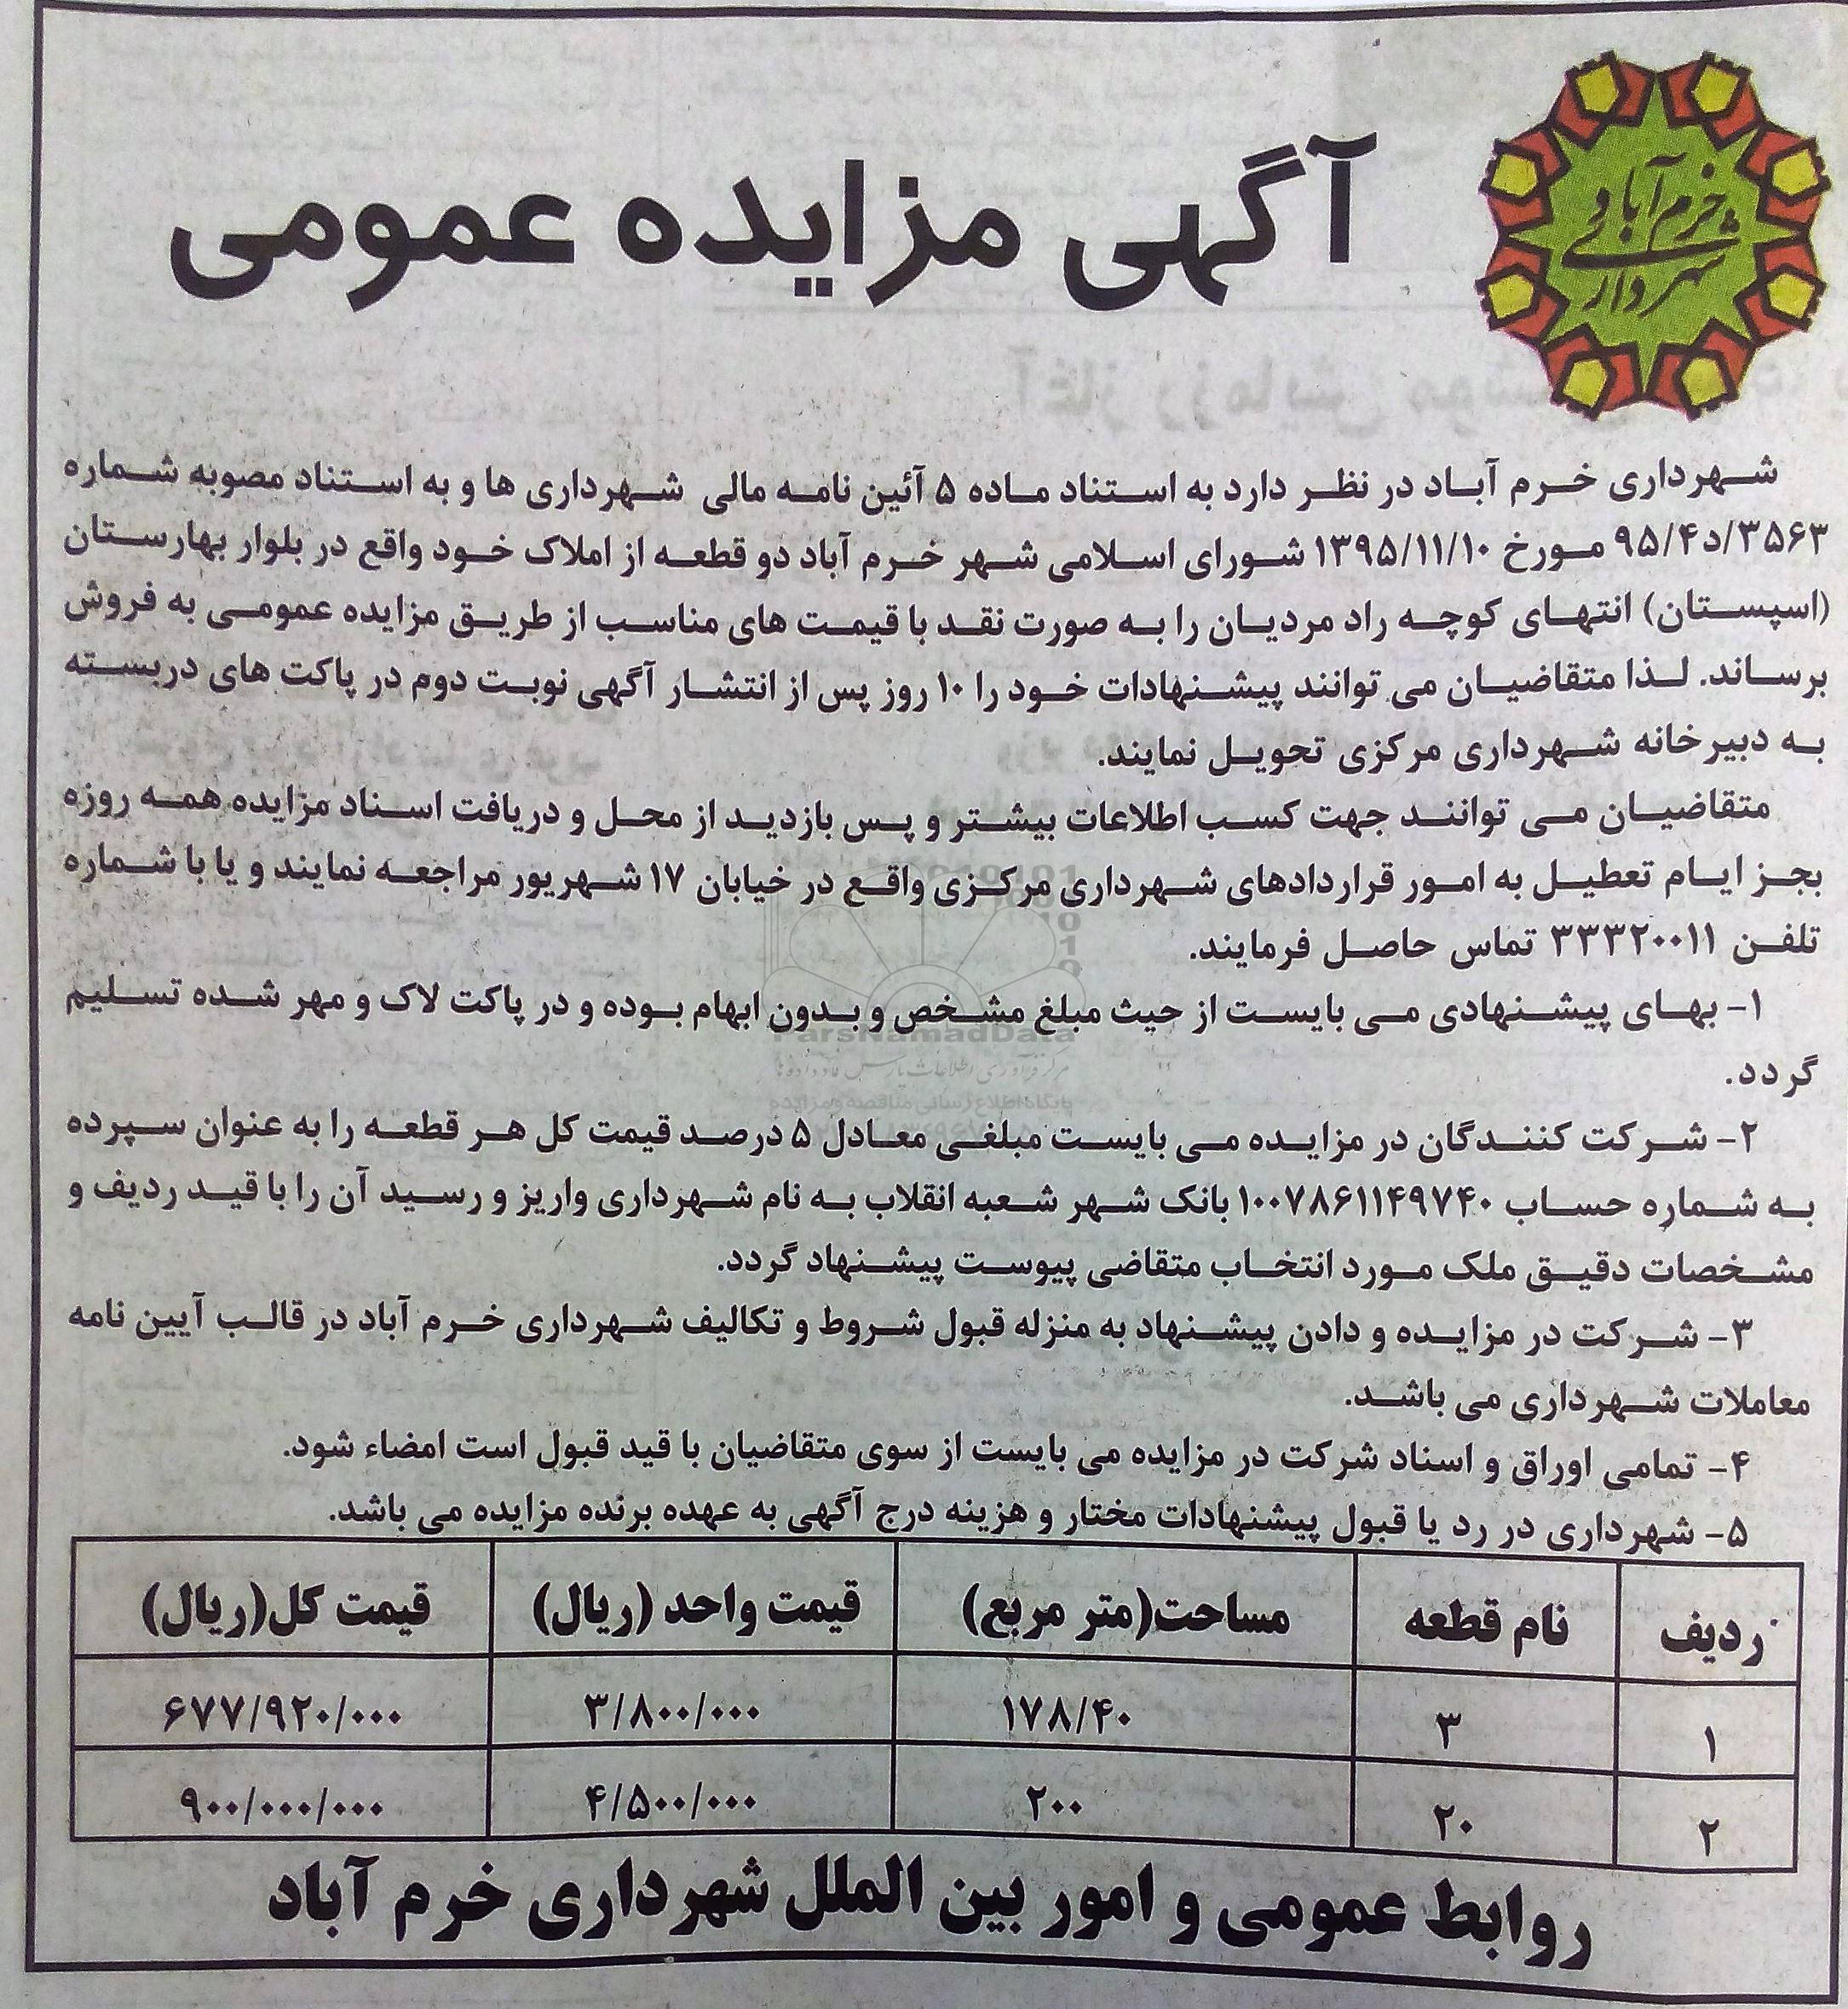 شهرداری خرم آباد
آگهی مزایده عمومی
شهرداری خرم آباد در نظر دارد به استناد ماده ۵ آئین نامه مالی شهرداری ها و به استناد مصوبه شماره
۹۵/۴د/۳۵۶۳ مورخ ۱۳۹۵/۱۱/۱۰ شورای اسلامی شهر خرم آباد دو قطعه از املاک خود واقع در بلوار بهارستان
(اسپستان) انتهای کوچه راد مردیان را به صورت نقد با قیمت های مناسب از طریق مزایده عمومی به فروش
برساند. لذا متقاضیان می توانند پیشنهادات خود را ۱۰ روز پس از انتشار آگهی نوبت دوم در پاکت های دربسته
به دبیرخانه شهرداری مرکزی تحویل نمایند.
متقاضیان می توانند جهت کسب اطلاعات بیشتر و پس بازدید از محل و دریافت اسناد مزایده همه روزه
بجز ایام تعطیل به امور قراردادهای شهرداری مرکزی واقع در خیابان ۱۷ شهریور مراجعه نمایند و یا با شماره
تلفن ۳۳۳۲۰۰۱۱ تماس حاصل فرمایند.
۱- بهای پیشنهادی می بایست از حیث مبلغ مشخص و بدون ابهام بوده و در پاکت لاک و مهر شده تسلیم
گردد.
۲- شرکت کنندگان در مزایده می بایست مبلغی معادل ۵ درصد قیمت کل هر قطعه را به عنوان سپرده
به شماره حساب ۱۰۰۷۸۶۱۱۴۹۷۴۰ بانک شهر شعبه انقلاب به نام شهرداری واریز و رسید آن را با قید ردیف و
مشخصات دقیق ملک مورد انتخاب متقاضی پیوست پیشنهاد گردد.
۳- شرکت در مزایده و دادن پیشنهاد به منزله قبول شروط و تکالیف شهرداری خرم آباد در قالب آیین نامه
معاملات شهرداری می باشد.
۴- تمامی اوراق و اسناد شرکت در مزایده می بایست از سوی متقاضیان با قید قبول است امضاء شود.
۵- شهرداری در رد یا قبول پیشنهادات مختار و هزینه درج آگهی به عهده برنده مزایده می باشد.
ردیف نام قطعه مساحت(متر مربع) قیمت واحد (ریال) قیمت کل(ریال)
۱ ۳ ۱۷۸/۴۰ ۳/۸۰۰/۰۰۰ ۶۷۷/۹۲۰/۰۰۰
۲ ۲۰ ۲۰۰ ۴/۵۰۰/۰۰۰ ۹۰۰/۰۰۰/۰۰۰
روابط عمومی و امور بین الملل شهرداری خرم آباد
ParsNamadData
مرکز فرآوری اطلاعات پارس نماد داده ها
پایگاه اطلاع رسانی مناقصه و مزایده